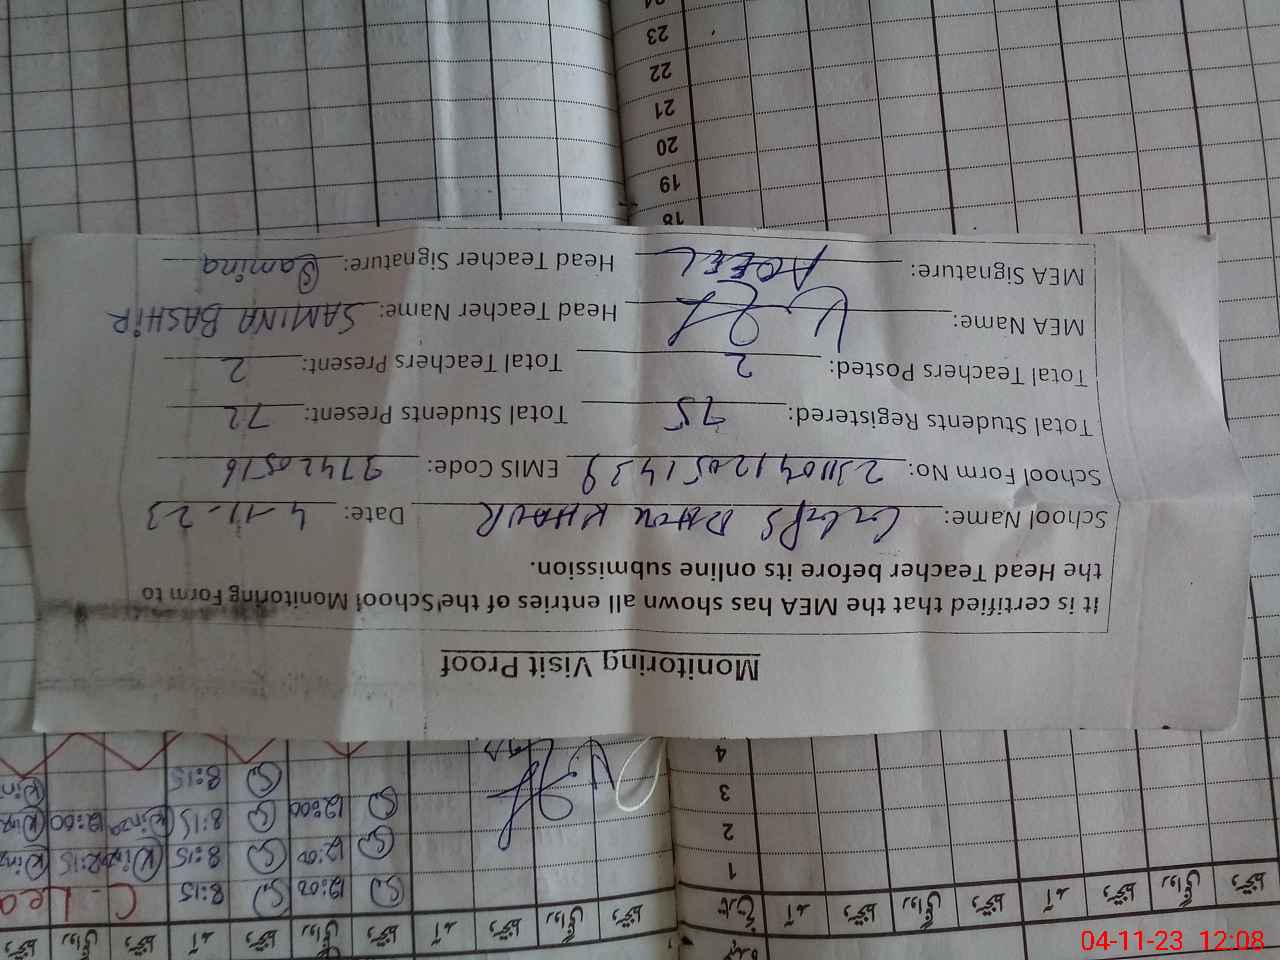 Monitoring Visit Proof
It is certified that the MEA has shown all entries of the School Monitoring Form to
the Head Teacher before its online submission.
School Name: GGPS DHOK KHOUR Date: 4-11-23
School Form No: EMIS Code: 37420516
Total Students Registered: 75 Total Students Present: 72
Total Teachers Posted: 2 Total Teachers Present: 2
MEA Name: Head Teacher Name: SAMINA BASHIR
MEA Signature: AQEEL Head Teacher Signature: Samina
18
19
20
21
22
23
24
1
2
3
4
8:15 12:02
8:15 12:00
8:15 12:00
8:15
C-Lea
12:15
12:00
تاریخ آمد دستخط روانگی دستخط آمد دستخط روانگی دستخط
آمد دستخط روانگی دستخط آمد دستخط روانگی دستخط
04-11-23 12:08